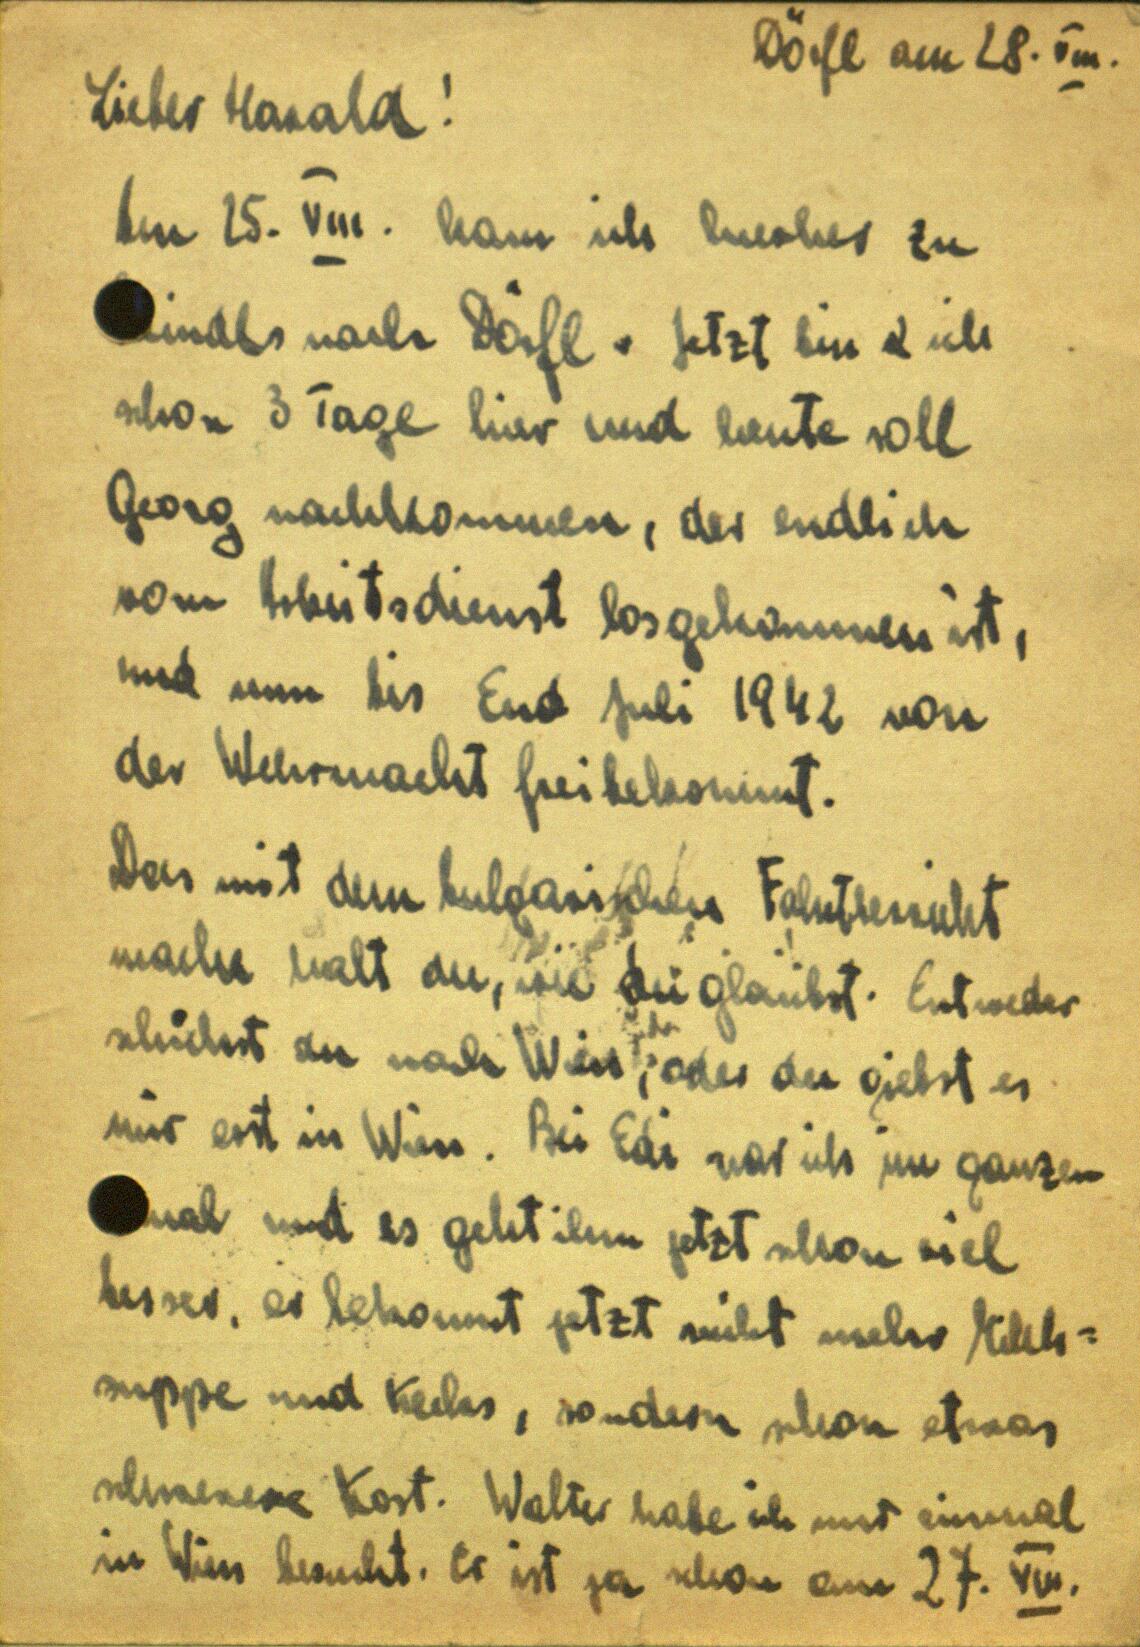 Dörfl am 28. VIII.
Lieber Harald!
Am 25. VIII. kam ich hierher zu
nach Dörfl. Jetzt bin ich
schon 3 Tage hier und heute soll
Georg nachkommen, der endlich
vom Arbeitsdienst losgekommen ist,
und nun bis End Juli 1942 von
der Wehrmacht freibekommt.
Das mit dem bulgarischen Fahrtbericht
mache halt du, wie du glaubst. Entweder
schickst du nach Wien, oder du giebst es
mir erst in Wien. Bei Edi war ich im ganzen
mal und es geht ihm jetzt schon viel
besser, er bekommt jetzt nicht mehr Milch=
suppe und Keks, sondern schon etwas
schwerere Kost. Walter habe ich nur einmal
in Wien besucht. Er ist ja schon am 27. VIII.